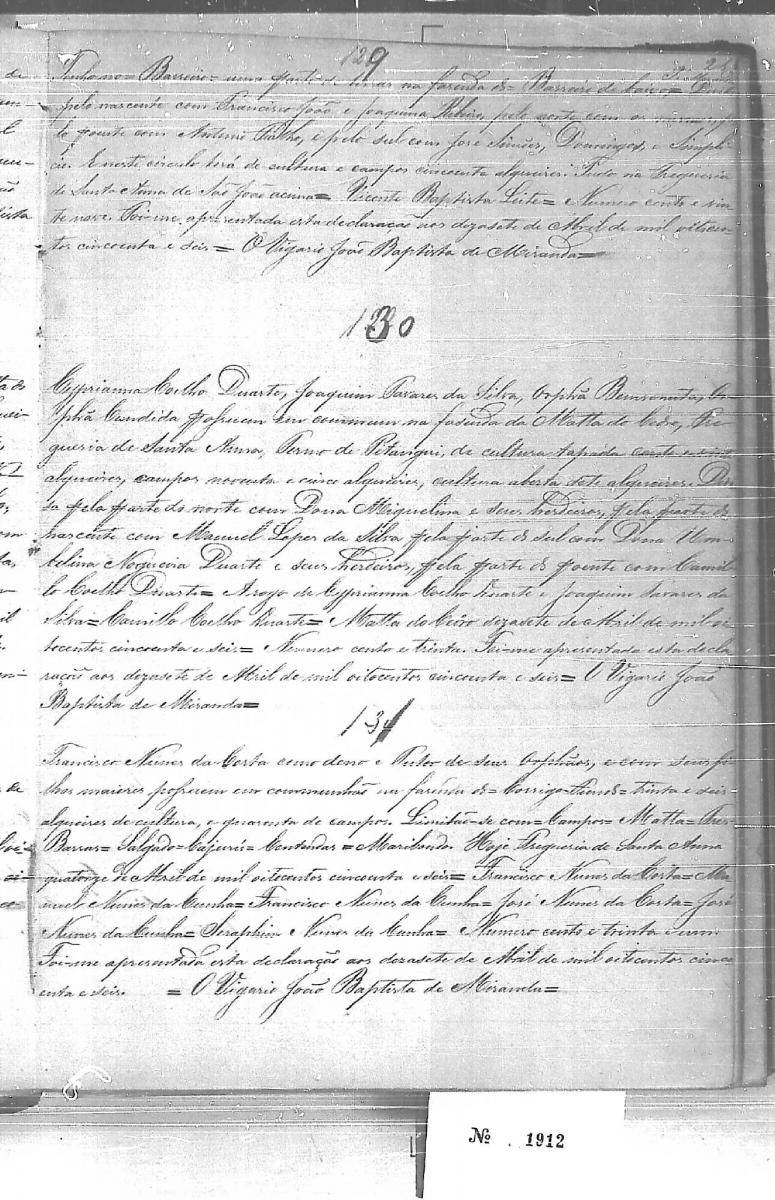 129
Tenho no = Barreiro = uma parte de terras na fazenda do = Barreiro de baixo =
pelo nascente com Francisco João e Joaquina Ribeiro, pelo norte com os mesmos,
lo poente com Antonio Fialho, e pelo sul com José Simões, Domingos, e Simpli-
cio. E neste circulo terá de cultura e campos cincoenta alqueires. Tudo na Freguesia
de Santa Anna de São João acima = Vicente Baptista Leite = Numero cento e vin
te nove. Foi-me apresentada esta declaração aos dezasete de Abril de mil oitocen-
tos cincoenta e seis = O Vigario João Baptista de Miranda =
130
Cyprianna Coelho Duarte, Joaquim Tavares da Silva, Orphã Bemvenuta, Or-
phã Candida possuem em commum na fazenda da Matta do Cedro, Fre-
guesia de Santa Anna, Termo de Pitangui, de cultura tapada cento e
alqueires, campos noventa e cinco alqueires, cultura aberta sete alqueires. Divi
sa pela parte do norte com Dona Miguelina e seus herdeiros, pela parte do
nascente com Manuel Lopes da Silva pela parte do sul com Dona Um-
belina Nogueira Duarte e seus herdeiros, pela parte do poente com Camil-
lo Coelho Duarte = Arogo de Cyprianna Coelho Duarte e Joaquim Tavares da
Silva = Camillo Coelho Duarte = Matta do Cedro dezasete de Abril de mil oi-
tocentos cincoenta e seis = Numero cento e trinta. Foi-me apresentada esta decla
ração aos dezasete de Abril de mil oitocentos cincoenta e seis = O Vigario João
Baptista de Miranda =
131
Francisco Nunes da Costa como dono e Tutor de seus Orphãos, e com seus fi-
lhos maiores possuem em communhão na fazenda do = Corrigo = trinta e seis
alqueires de cultura, e quarenta de campos. Limitão-se com = Campos = Matta = Tres
Barras = Salgado = Cajurú = Contendas = Maribondo. Hoje Freguesia de Santa Anna
quatorze de Abril de mil oitocentos cincoenta e seis = Francisco Nunes da Costa = Ma-
nuel Nunes da Cunha = Francisco Nunes da Cunha = José Nunes da Costa = José
Nunes da Cunha = Seraphim Nunes da Cunha = Numero cento e trinta e um
Foi-me apresentada esta declaração aos dezasete de Abril de mil oitocentos cinco
enta e seis. = O Vigario João Baptista de Miranda =
№ 1912